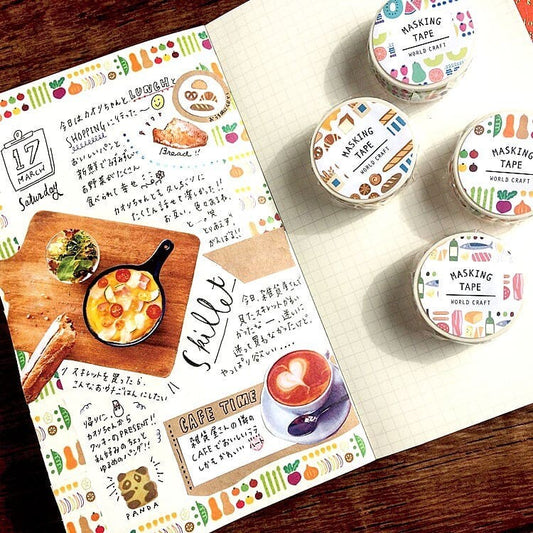 17
MARCH
Saturday
今日はカオリちゃんとLUNCHと
SHOPPINGに行った
おいしいパンと
新鮮で
お野菜がたくさん
食べられて幸せ
カオリちゃんとも久しぶりに
たくさん話せて楽しかった!!
お互い、色々あるね
とりあえず、
がんばろ!!
Bread!!
Skillet
今日、雑貨屋さんで
見たスキレットがかわい
かったなー 迷いに
迷って買わなかったけど、
やっぱり欲しい....
スキレットを買ったら、
こんなおうちごはんにしたい
帰りに
カオリちゃんから
クッキーのPRESENT!!
私好みのちょっと
ゆるめのパンダ!!
PANDA
CAFE TIME
雑貨屋さんの横の
CAFEでおいしいラテ
しかもかわいい
MASKING
TAPE
WORLD CRAFT
MASKING
TAPE
WORLD CRAFT
MASKING
TAPE
WORLD CRAFT
MASKING
TAPE
WORLD CRAFT